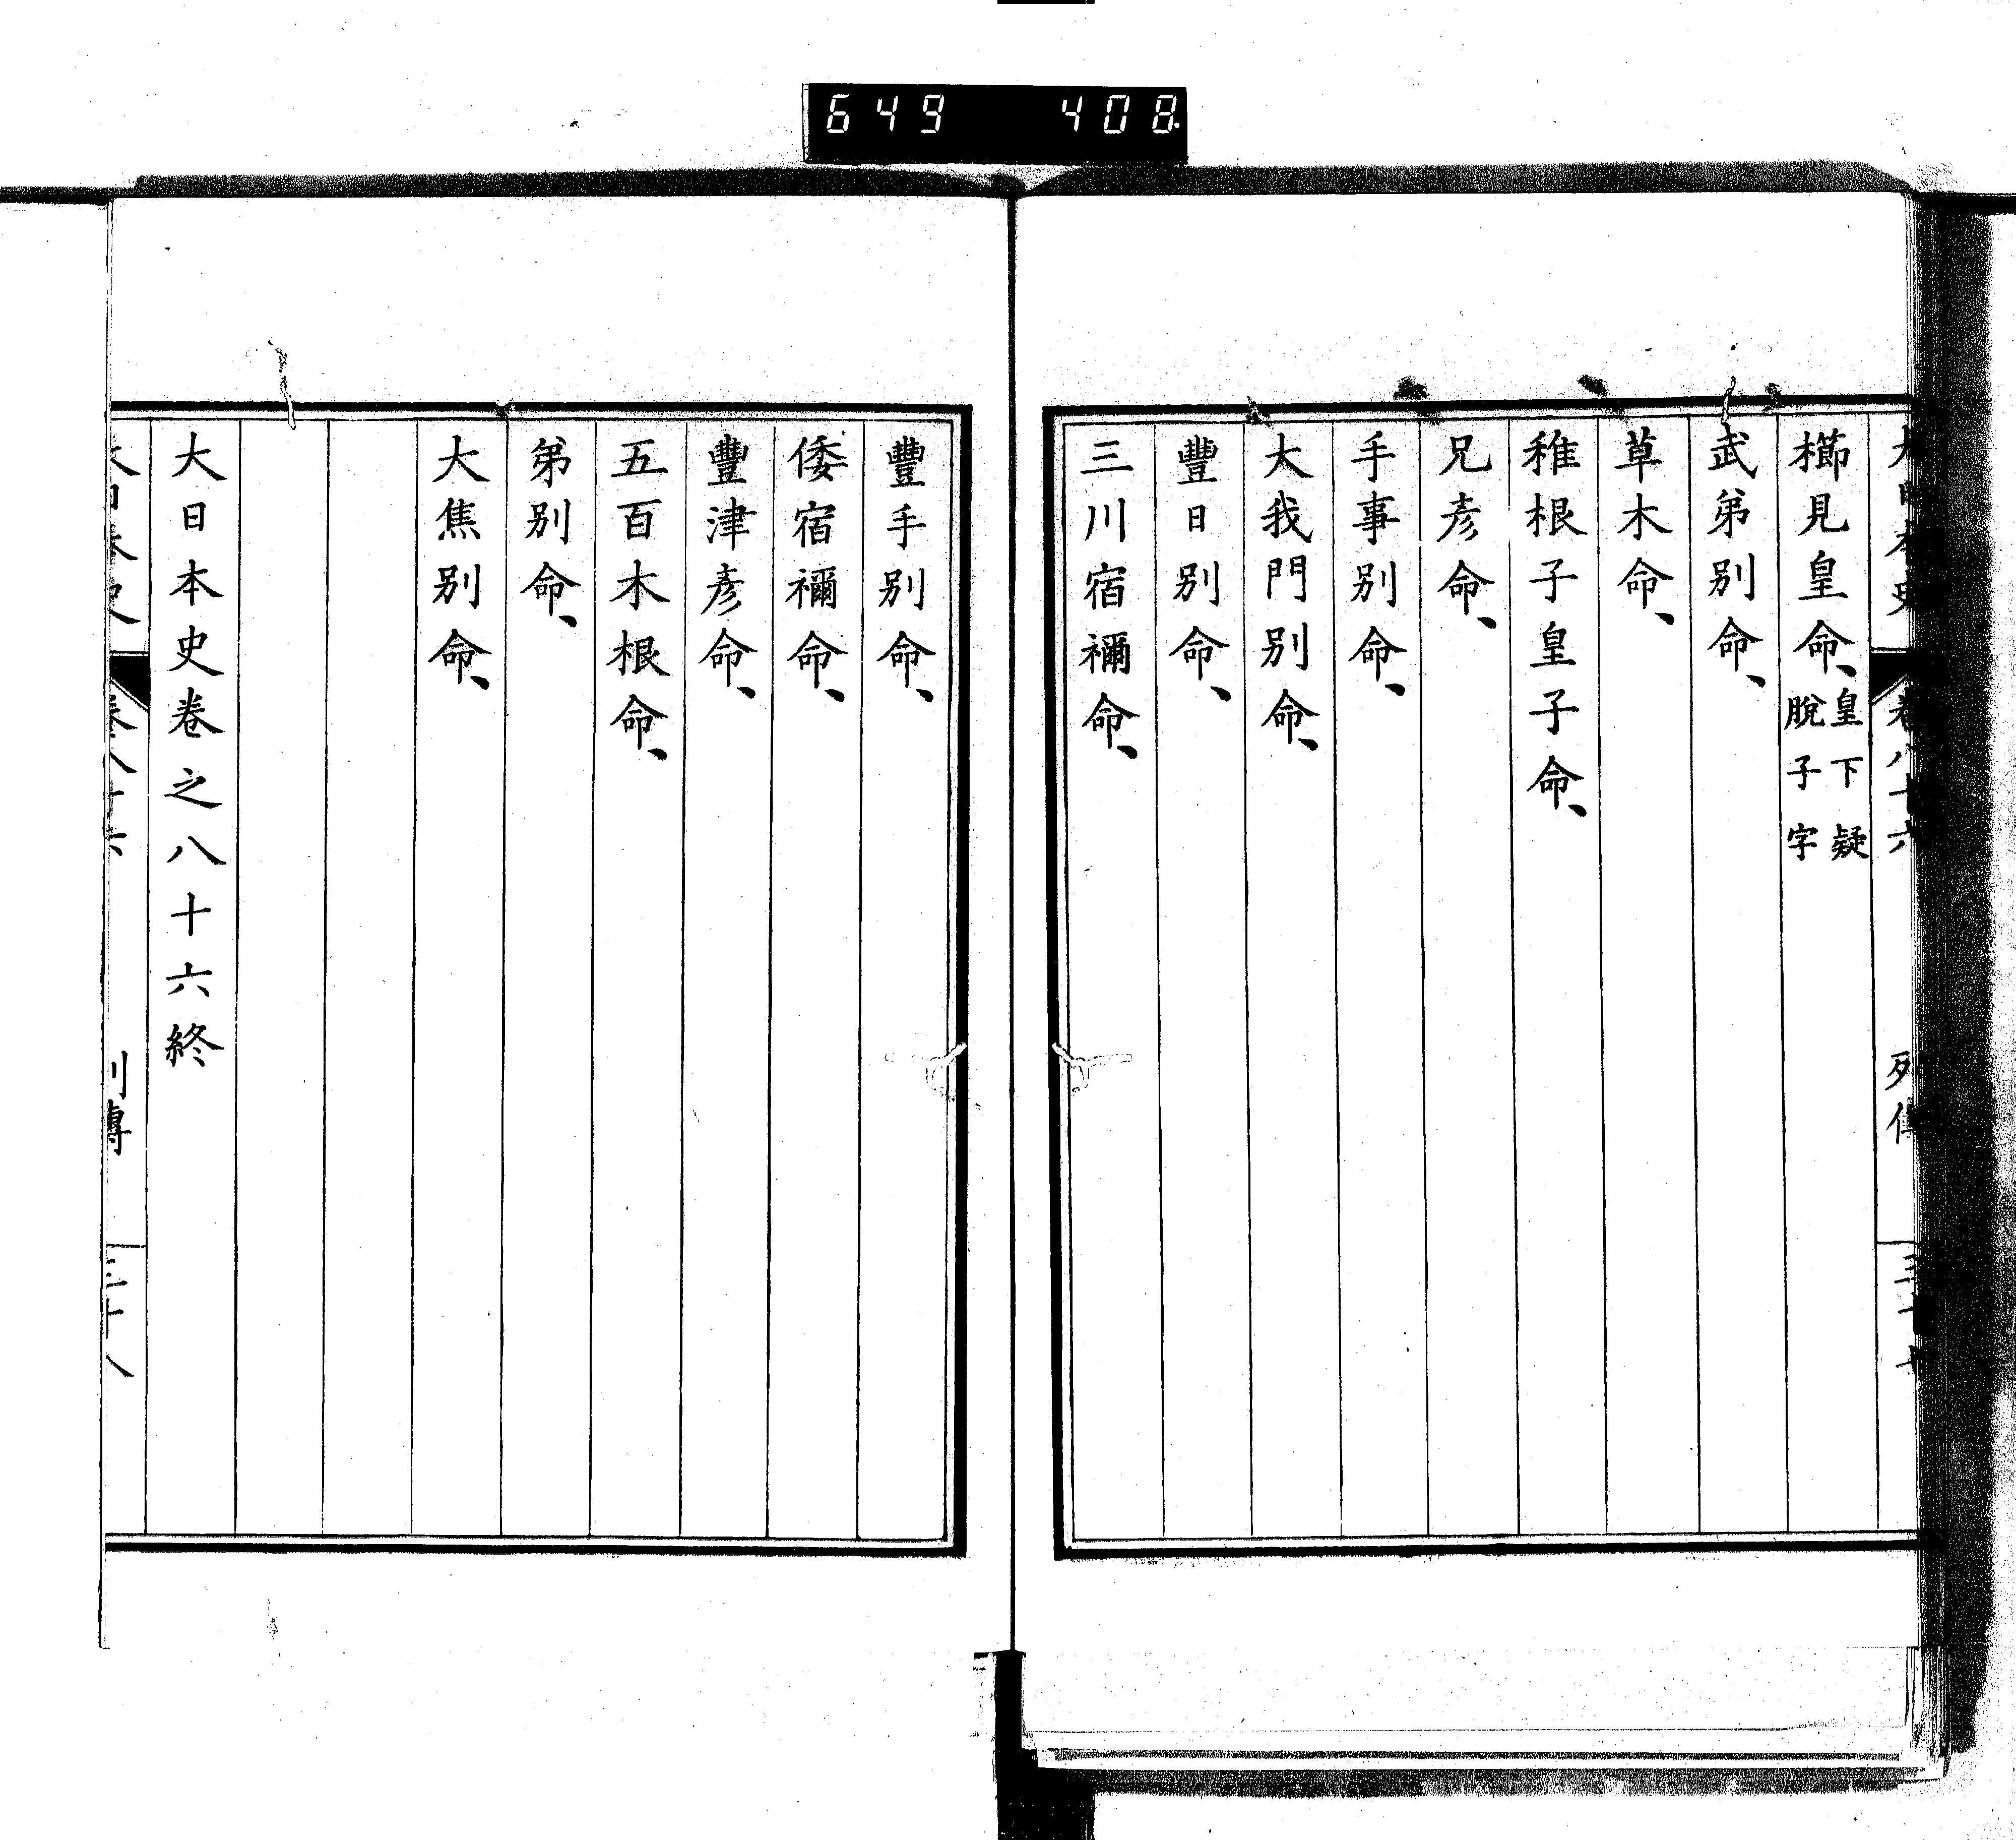 649 408
大日本史 卷八十六 列傳 三十七
櫛見皇命、皇下疑脫子字
武弟別命、
草木命、
稚根子皇子命、
兄彥命、
手事別命、
大我門別命、
豐日別命、
三川宿禰命、
豐手別命、
倭宿禰命、
豐津彥命、
五百木根命、
弟別命、
大焦別命、
大日本史卷之八十六終
大日本史 卷八十六 列傳 三十八